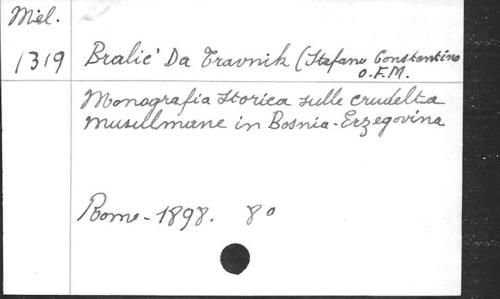 Miel.
1319 Bralić Da Travnik (Stefano Constantino
O.F.M.
Monografia storica sulle crudelta
musulmane in Bosnia-Erzegovina
Rome - 1898. 8°